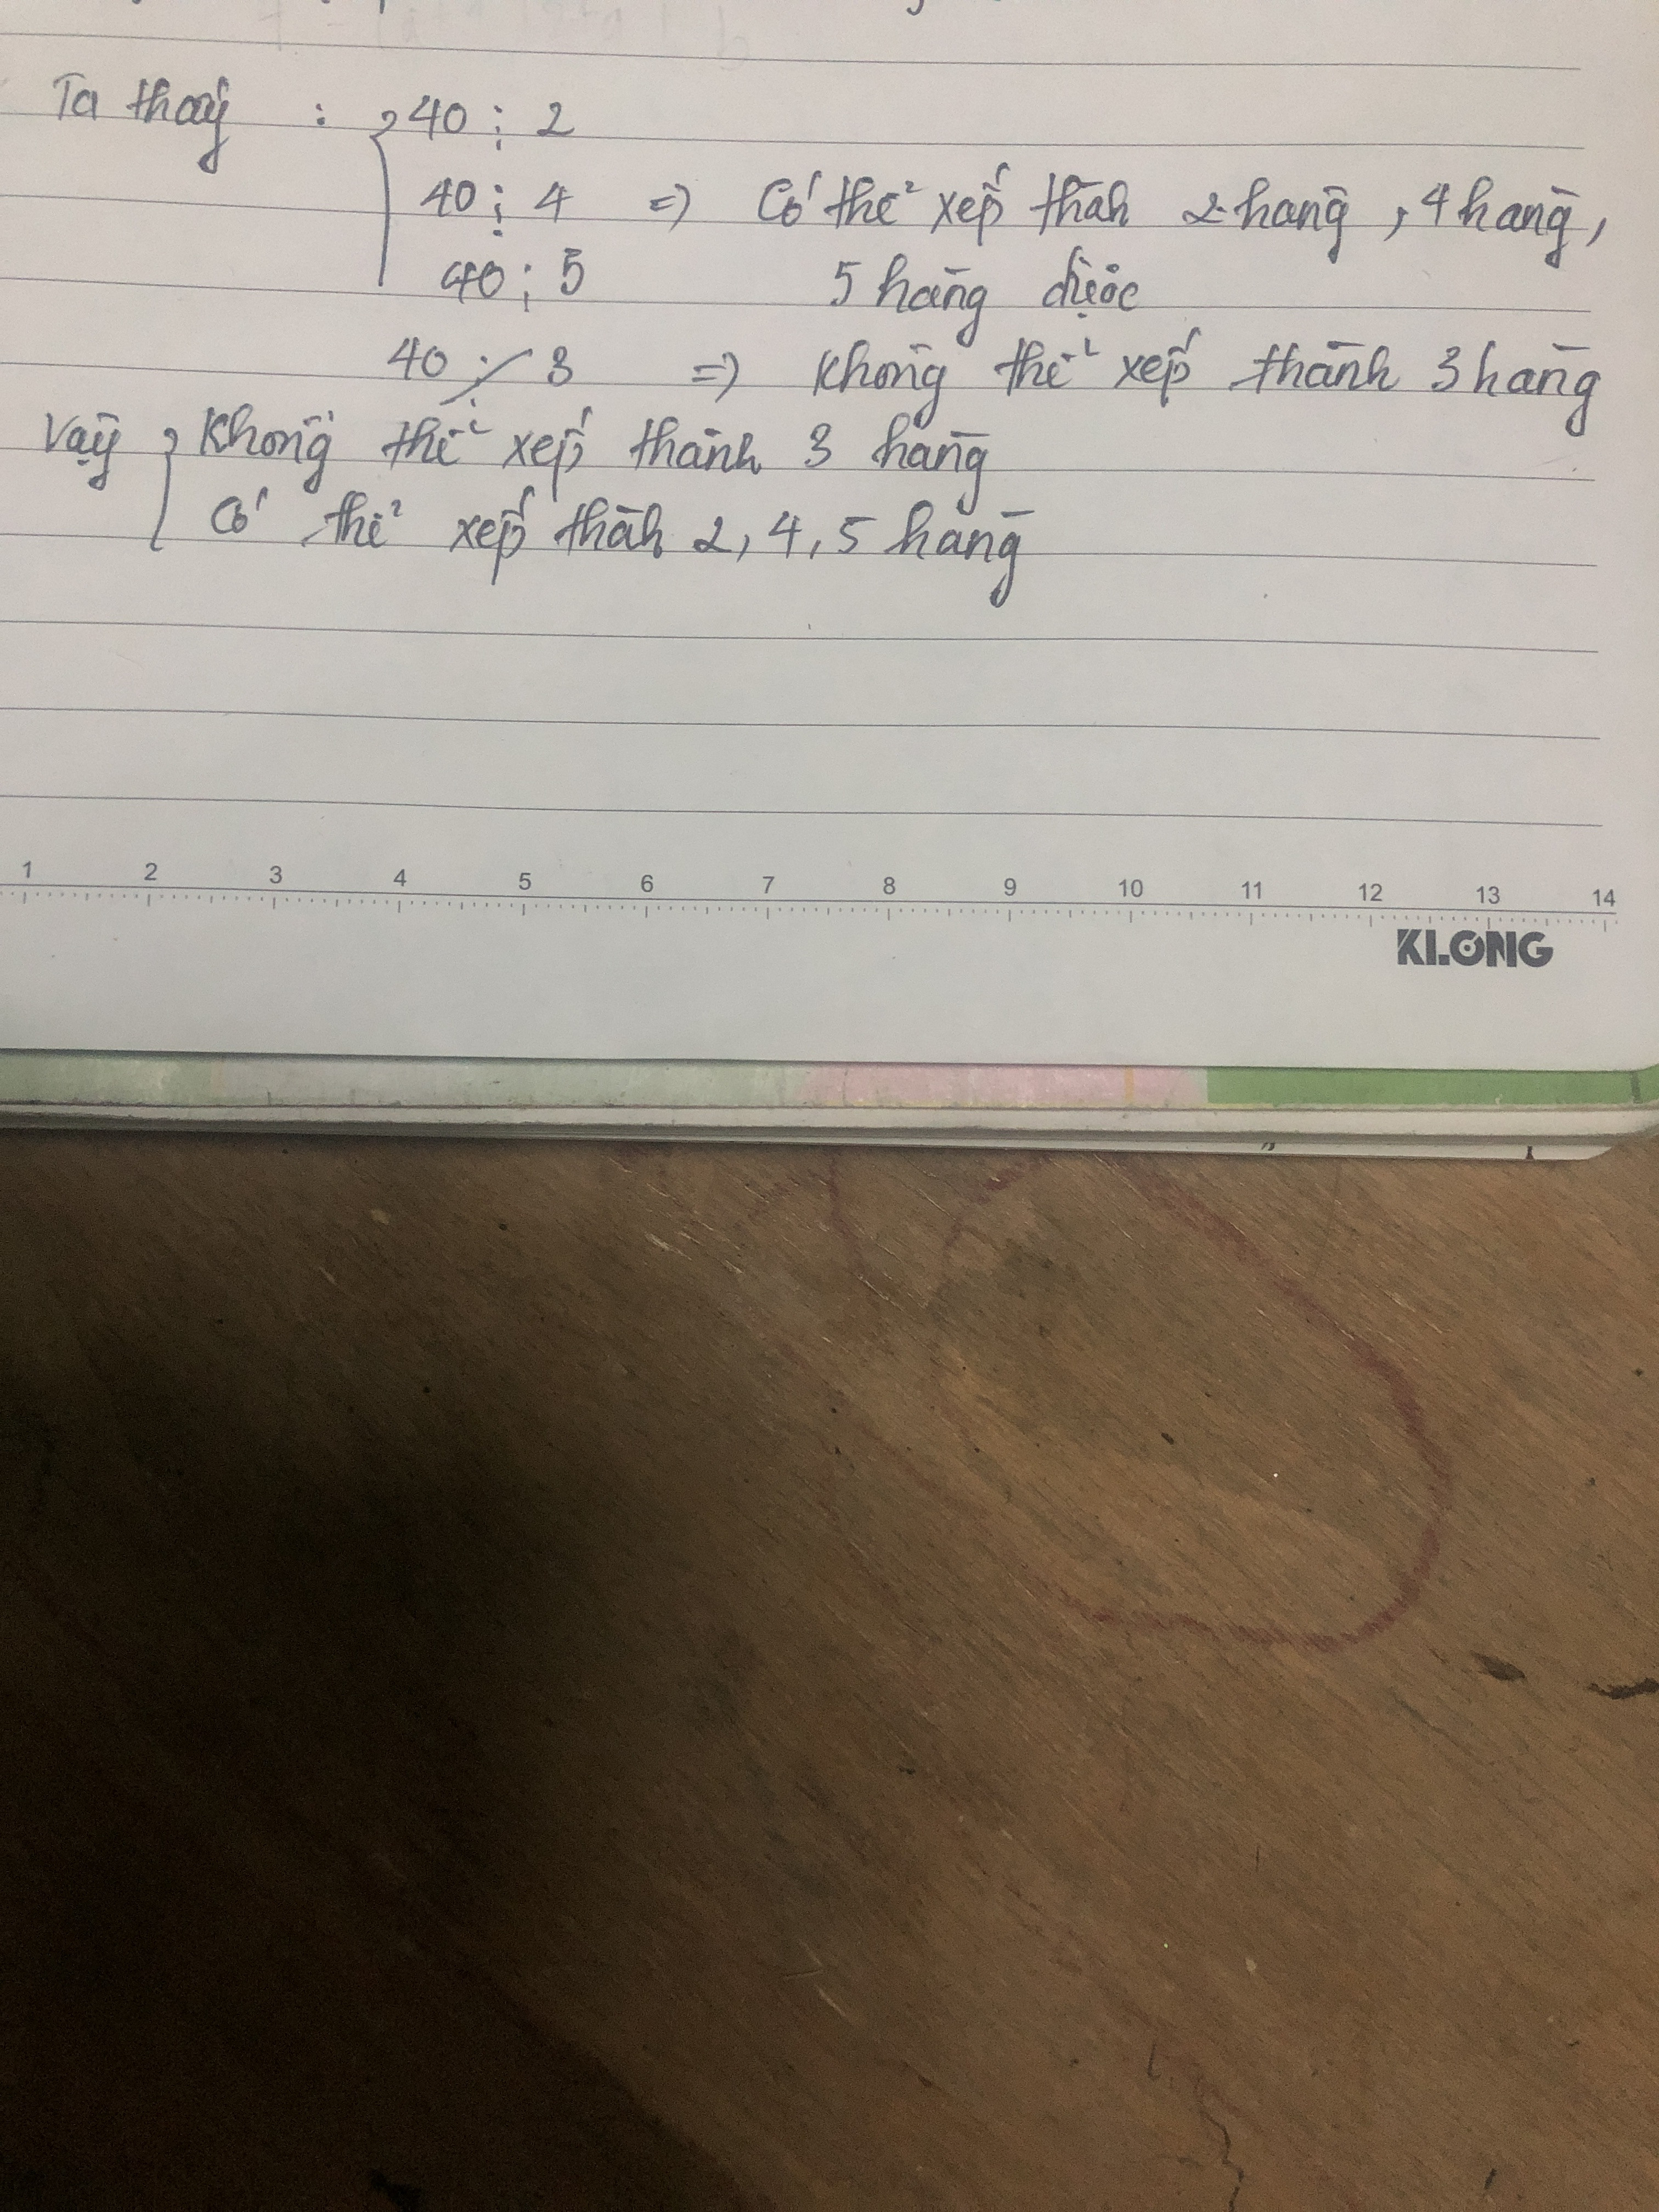 Ta thấy : { 40 ⋮ 2
40 ⋮ 4 => Có thể xếp thành 2 hàng, 4 hàng,
40 ⋮ 5 5 hàng được
40 ⋮̸ 3 => Không thể xếp thành 3 hàng
Vậy { Không thể xếp thành 3 hàng
Có thể xếp thành 2, 4, 5 hàng
1 2 3 4 5 6 7 8 9 10 11 12 13 14
KLONG